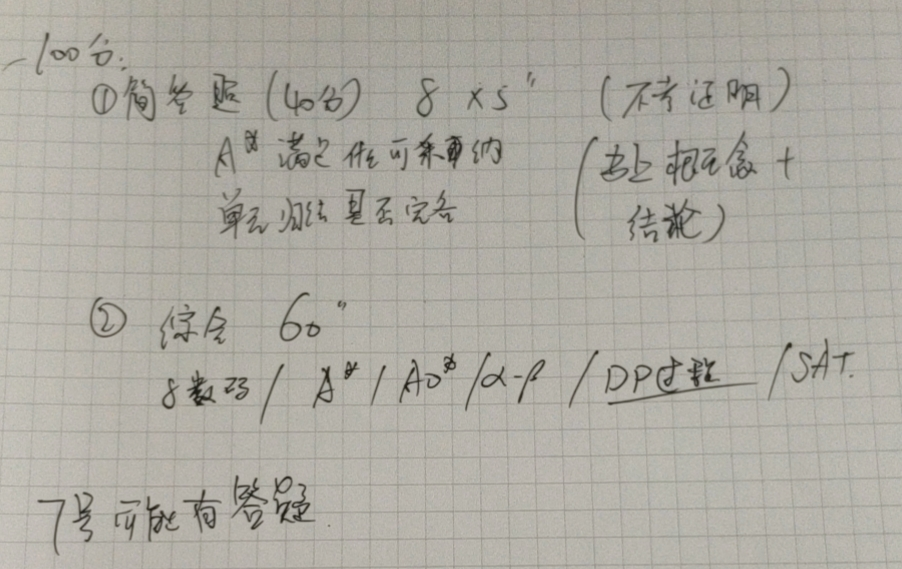 100分:
①简答题 (40分) 8×5" (不考证明)
A* 满足什么可采纳 (书上概念+
单元归结是否完备 结论)
② 综合 60"
8数码/A*/AO*/α-β/DP过程/SAT.
7号可能有答疑